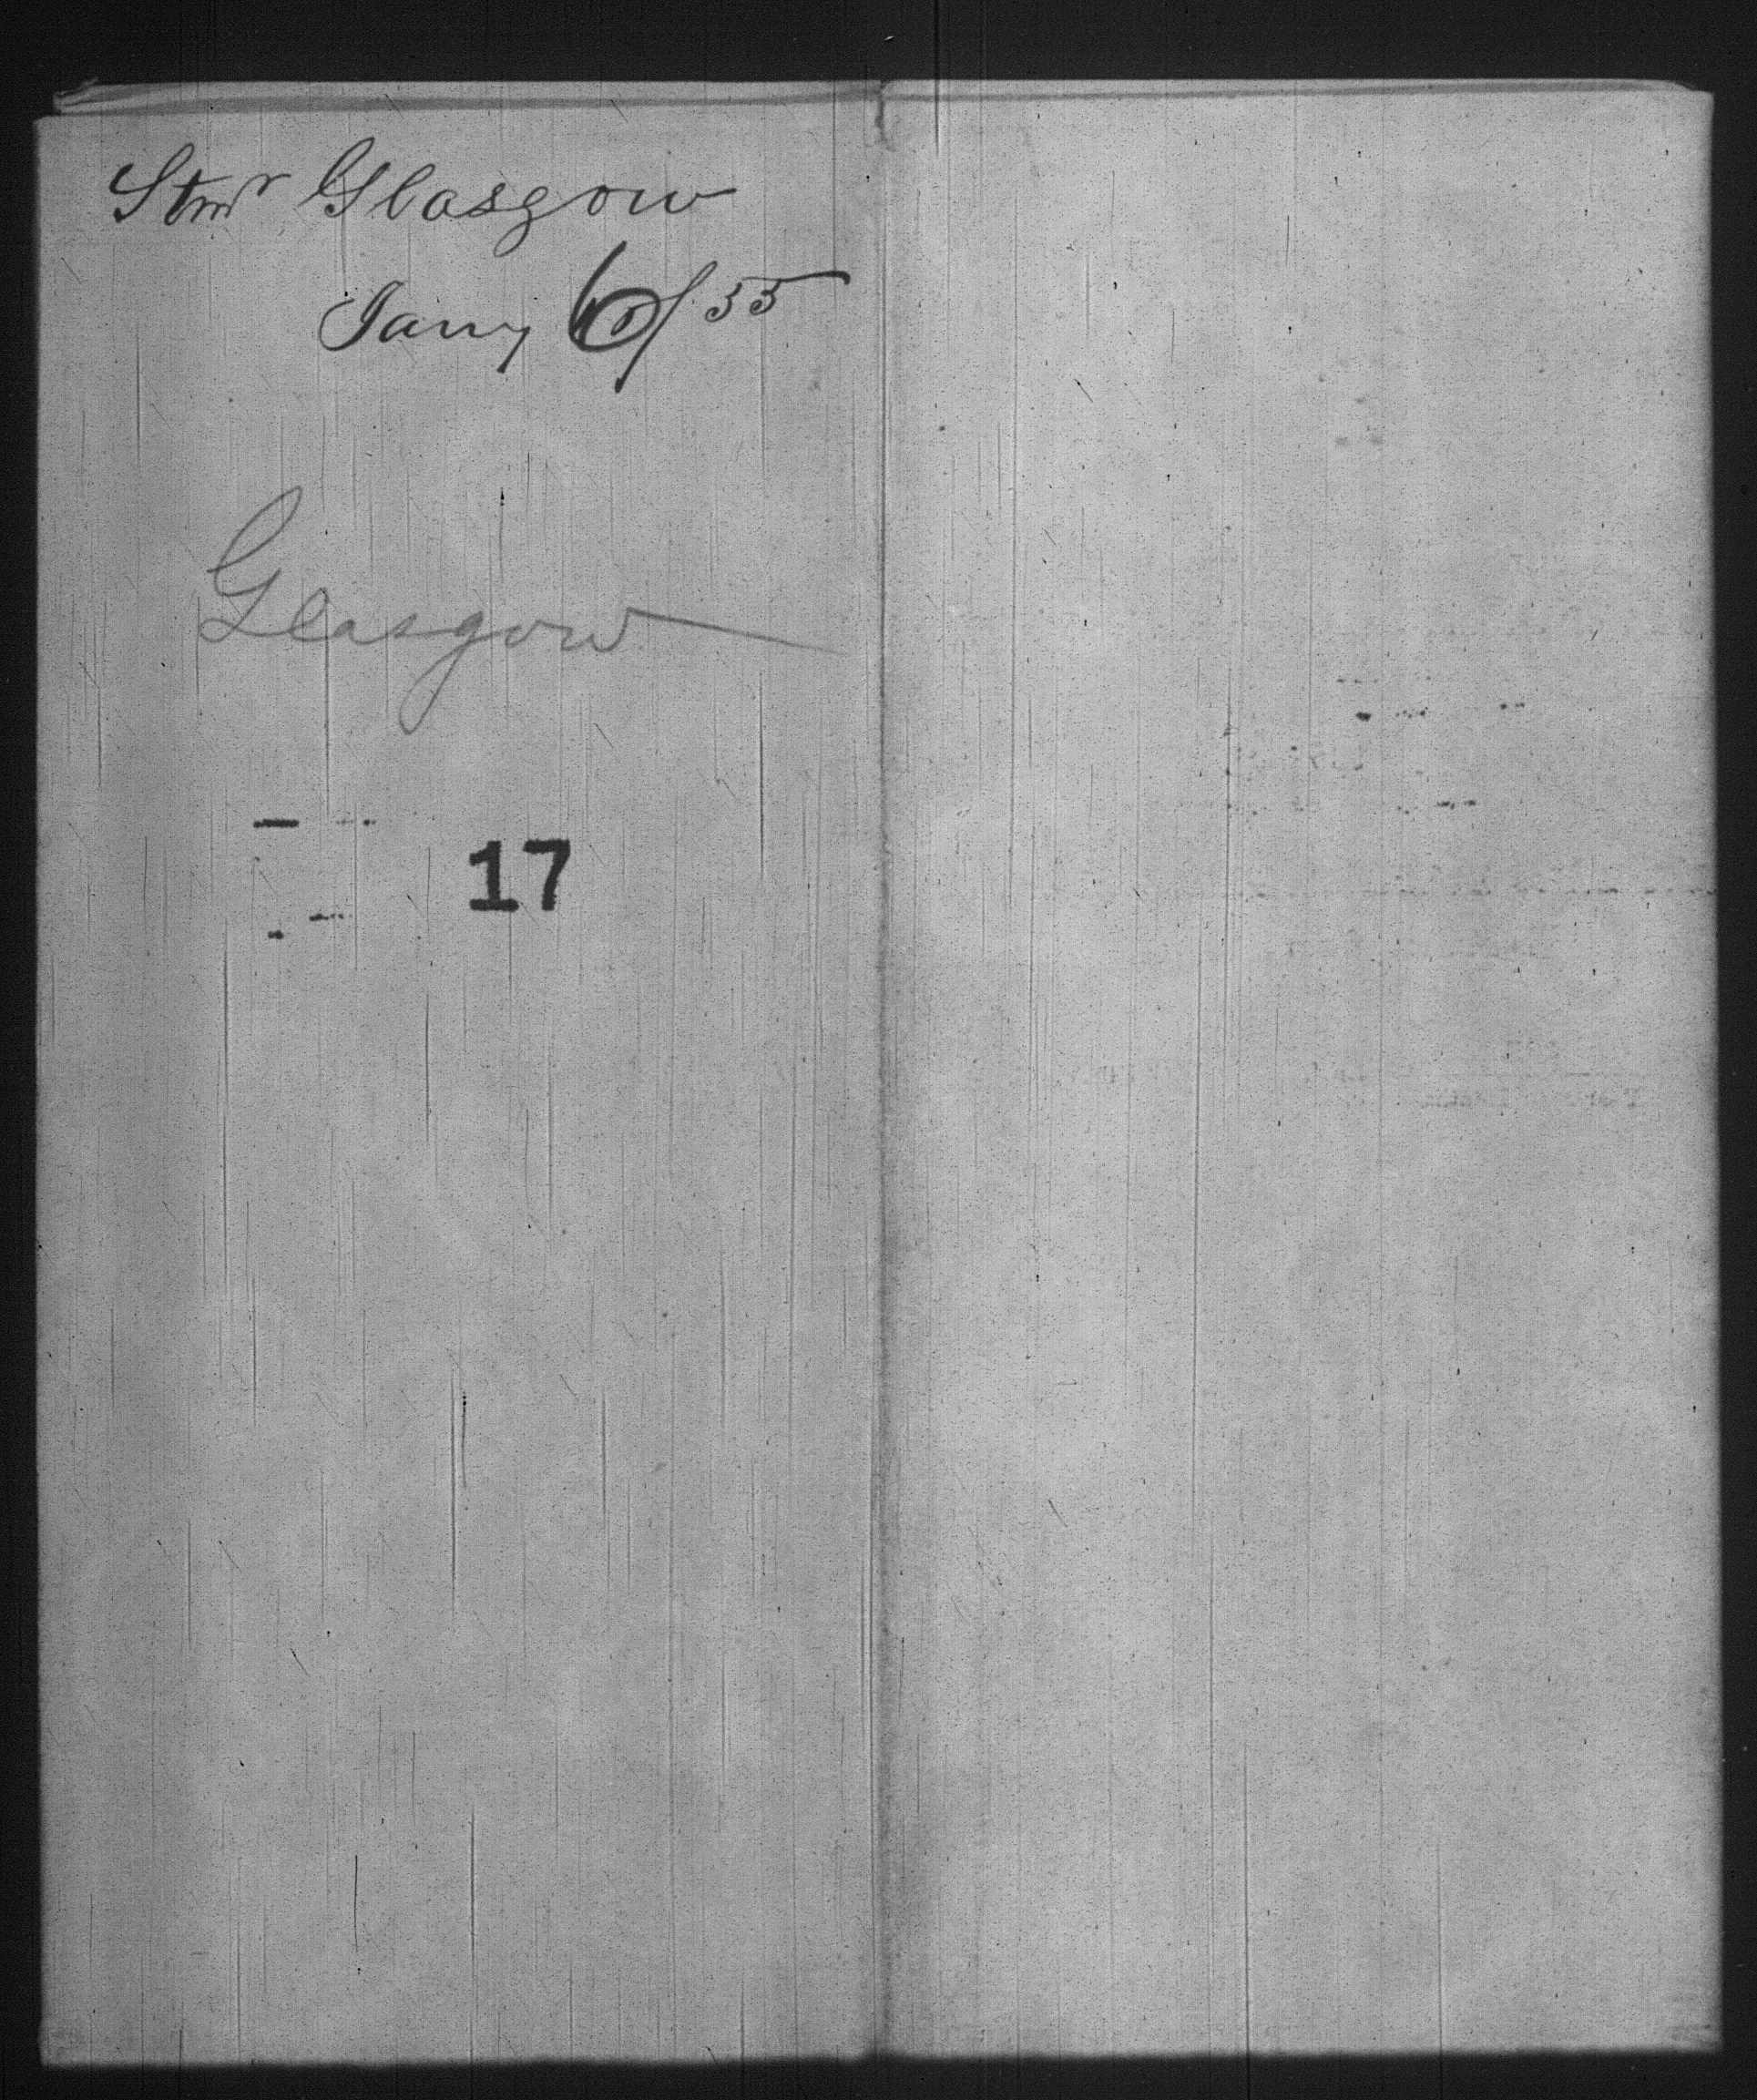 Stmr Glasgow
Jany 6/55
Glasgow
17